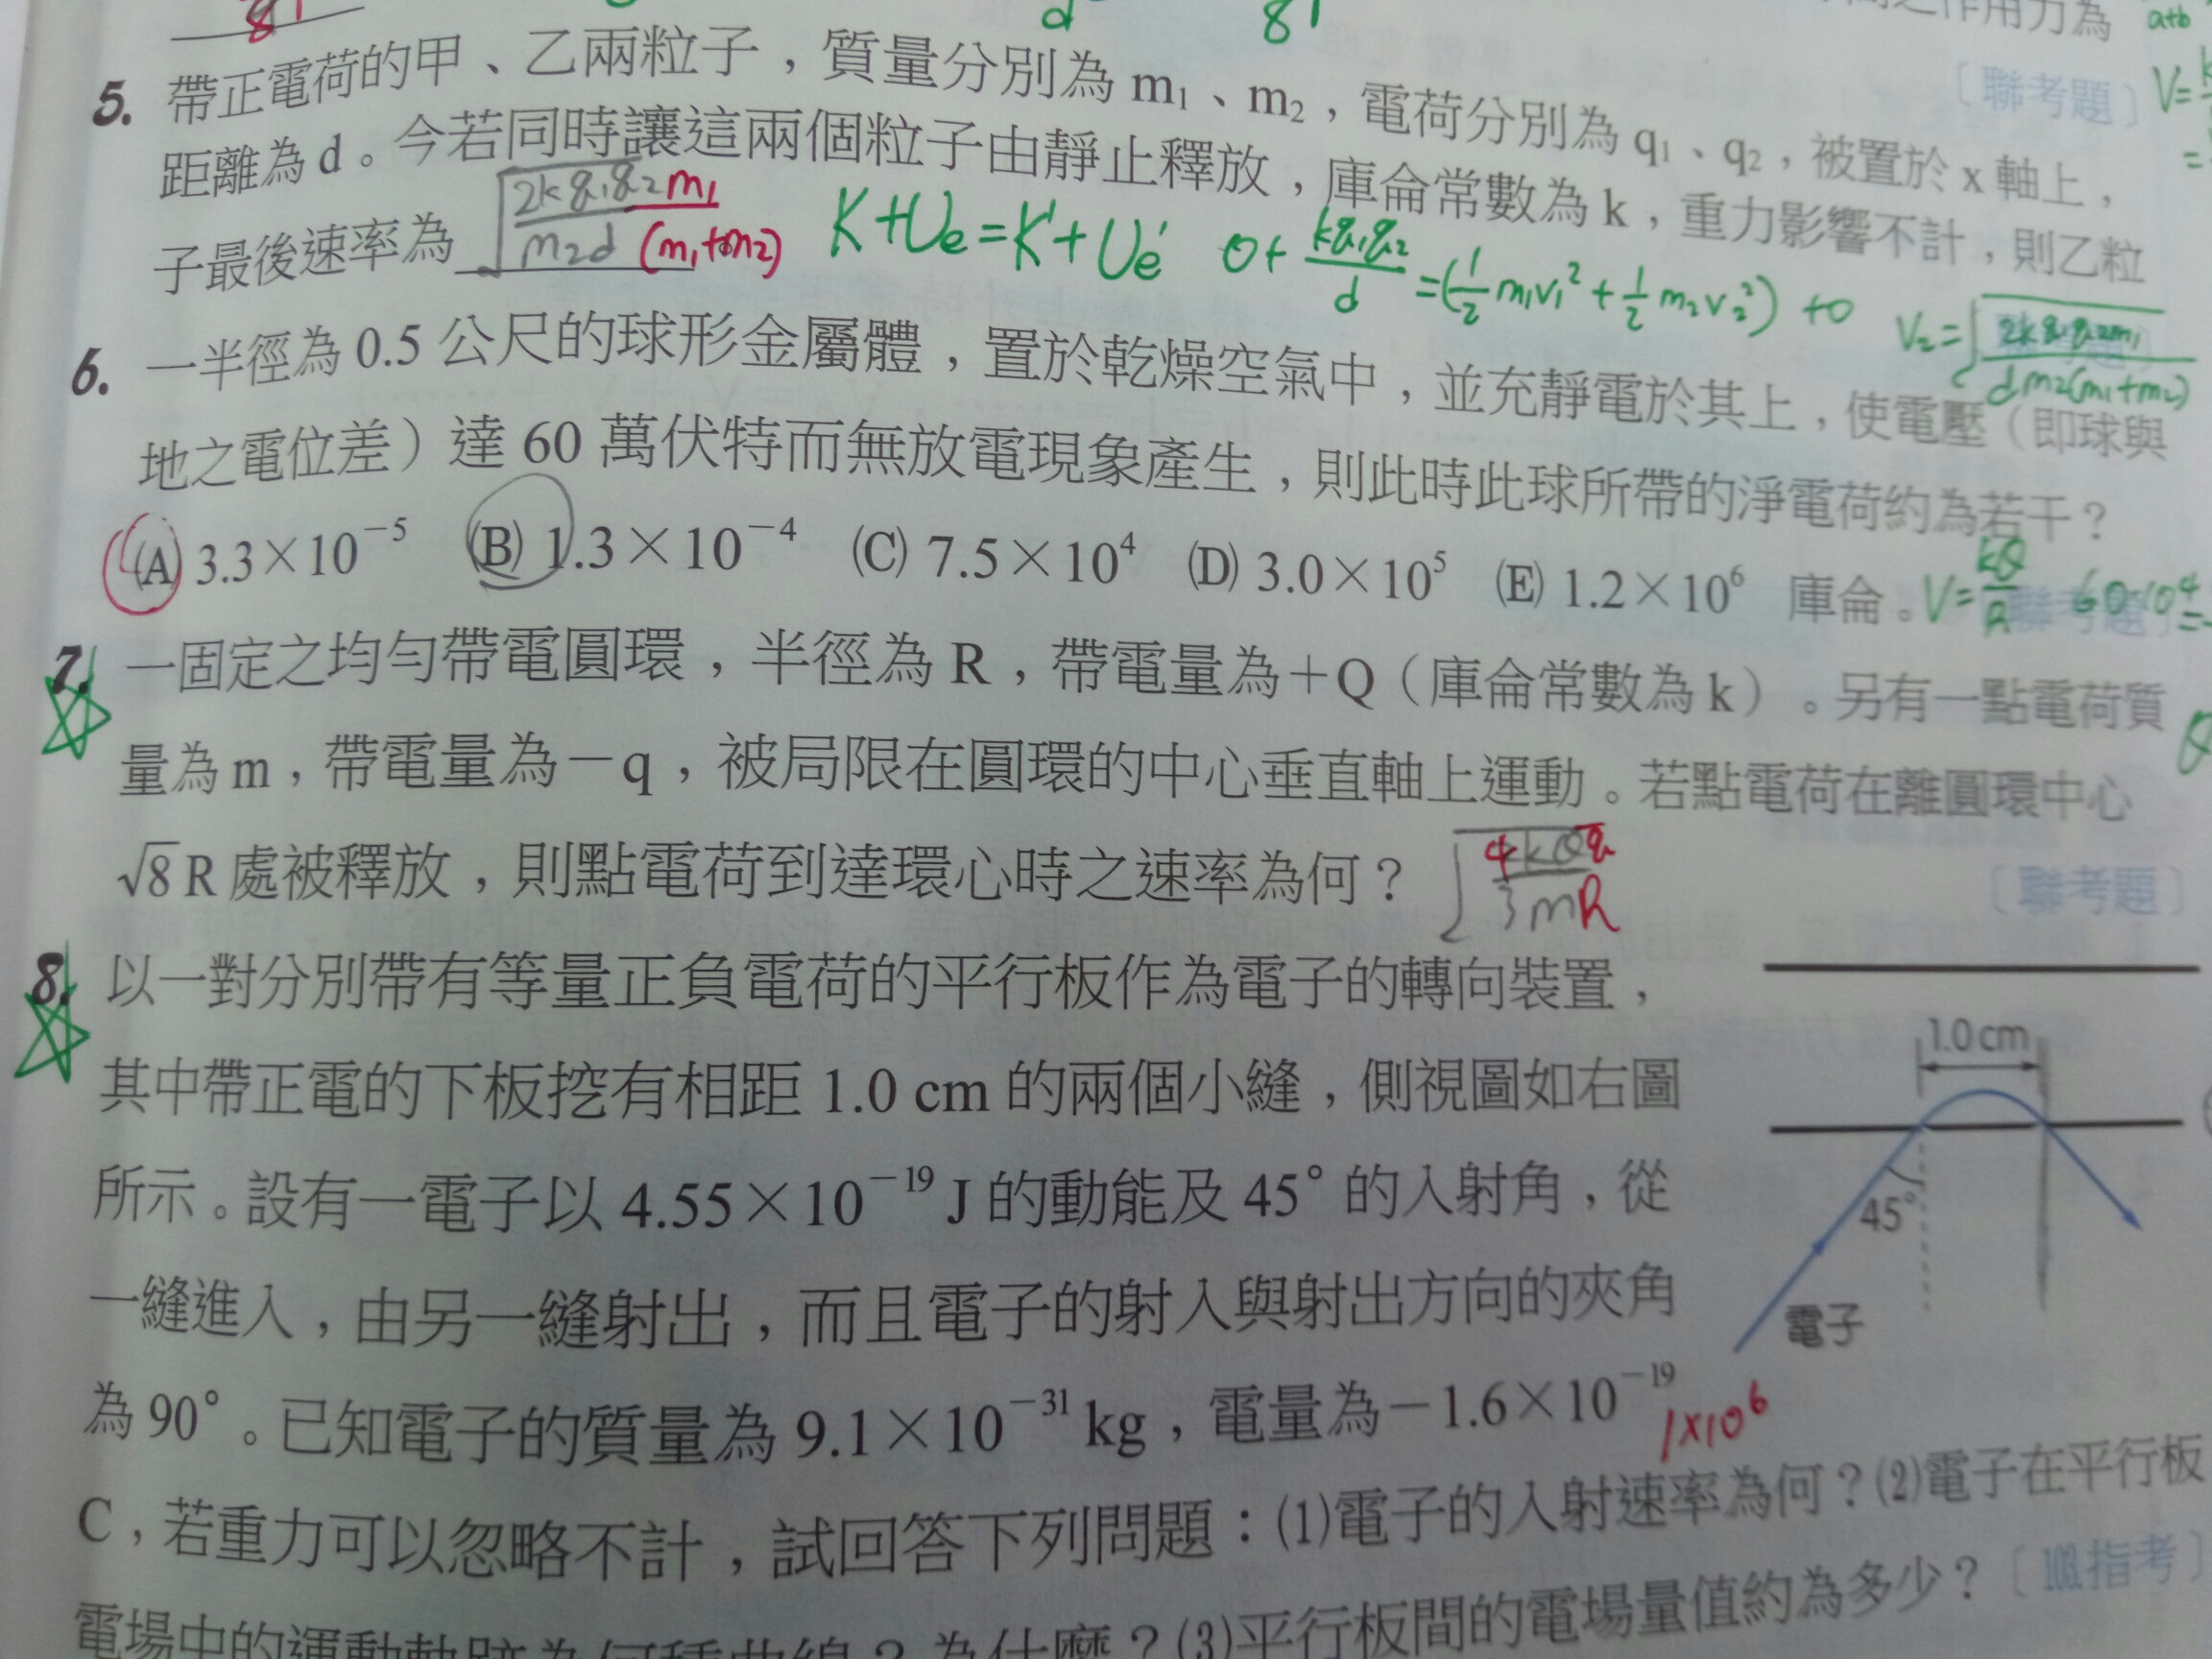 81
d
81
之作用力為
a+b
5. 帶正電荷的甲、乙兩粒子，質量分別為 m₁、m₂，電荷分別為 q₁、q₂，被置於 x 軸上，
〔聯考題〕
V=
距離為 d。今若同時讓這兩個粒子由靜止釋放，庫侖常數為 k，重力影響不計，則乙粒
子最後速率為 √(2kq₁q₂m₁ / m₂d(m₁+m₂))
K+Ue=K'+Ue' 0+kq₁q₂/d=(½m₁v₁²+½m₂v₂²)+0
6. 一半徑為 0.5 公尺的球形金屬體，置於乾燥空氣中，並充靜電於其上，使電壓（即球與
地之電位差）達 60 萬伏特而無放電現象產生，則此時此球所帶的淨電荷約為若干？
(A) 3.3×10⁻⁵ (B) 1.3×10⁻⁴ (C) 7.5×10⁴ (D) 3.0×10⁵ (E) 1.2×10⁶ 庫侖。
〔聯考題〕
V=kQ/R 60·10⁴=
7. 一固定之均勻帶電圓環，半徑為 R，帶電量為＋Q（庫侖常數為 k）。另有一點電荷質
量為 m，帶電量為－q，被局限在圓環的中心垂直軸上運動。若點電荷在離圓環中心
√8 R 處被釋放，則點電荷到達環心時之速率為何？ √(4kQq/3mR)
〔聯考題〕
8. 以一對分別帶有等量正負電荷的平行板作為電子的轉向裝置，
其中帶正電的下板挖有相距 1.0 cm 的兩個小縫，側視圖如右圖
所示。設有一電子以 4.55×10⁻¹⁹ J 的動能及 45° 的入射角，從
一縫進入，由另一縫射出，而且電子的射入與射出方向的夾角
為 90°。已知電子的質量為 9.1×10⁻³¹ kg，電量為－1.6×10⁻¹⁹
1×10⁶
C，若重力可以忽略不計，試回答下列問題：(1)電子的入射速率為何？(2)電子在平行板
電場中的運動軌跡為何種曲線？為什麼？(3)平行板間的電場量值約為多少？
1.0 cm
45°
電子